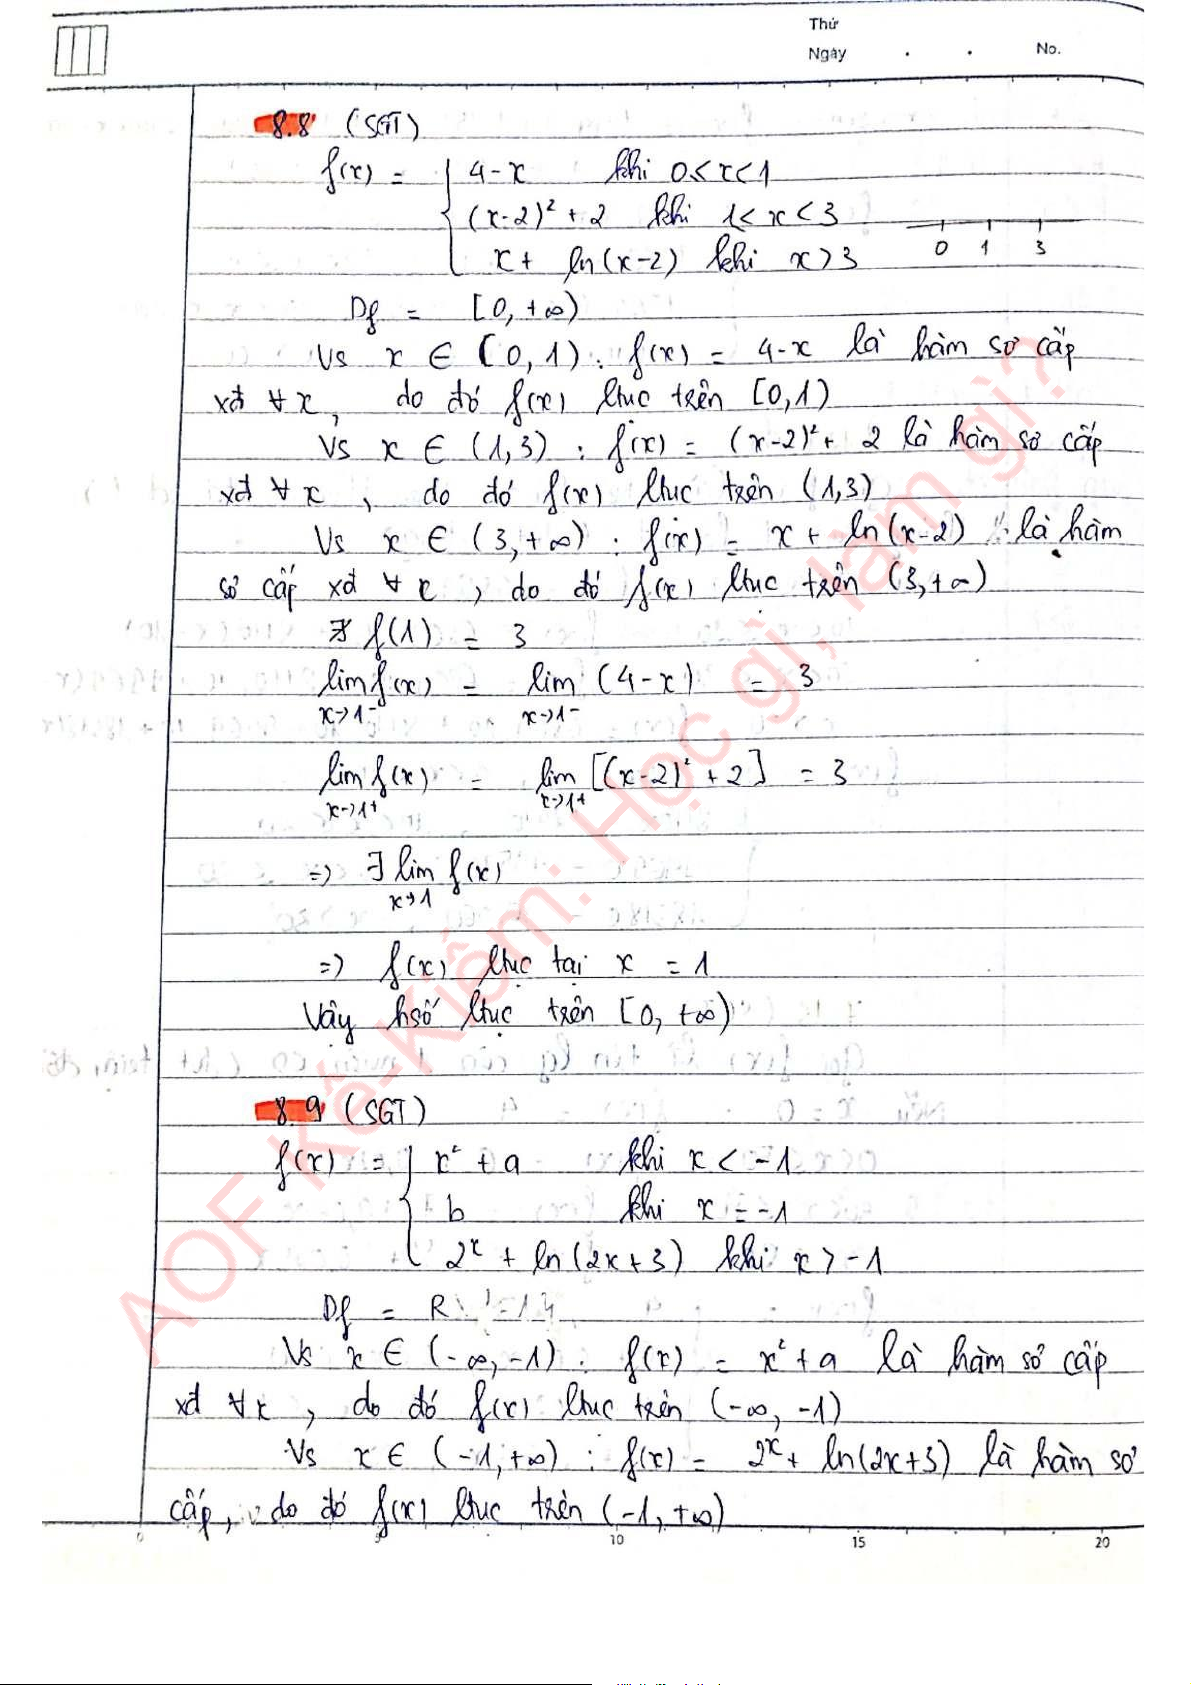 Thứ
Ngày . . No.
8.8 (SGT)
f(x) = { 4-x khi 0<x<1
(x-2)² + 2 khi 1<x<3
x + ln(x-2) khi x>3
0 1 3
Df = [0, +∞)
Vs x ∈ [0,1) : f(x) = 4-x là hàm sơ cấp
xđ ∀x, do đó f(x) ltục trên [0,1)
Vs x ∈ (1,3) : f(x) = (x-2)² + 2 là hàm sơ cấp
xđ ∀x, do đó f(x) ltục trên (1,3)
Vs x ∈ (3,+∞) : f(x) = x + ln(x-2) là hàm
sơ cấp xđ ∀x, do đó f(x) ltục trên (3,+∞)
f(1) = 3
lim f(x) = lim (4-x) = 3
x→1⁻ x→1⁻
lim f(x) = lim [(x-2)² + 2] = 3
x→1+ x→1+
=> ∃ lim f(x)
x→1
=> f(x) ltục tại x = 1
Vậy hsố ltục trên [0, +∞)
8.9 (SGT)
f(x) = { x² + a khi x < -1
b khi x = -1
2ˣ + ln(2x+3) khi x > -1
Df = R
Vs x ∈ (-∞, -1) : f(x) = x² + a là hàm sơ cấp
xđ ∀x, do đó f(x) ltục trên (-∞, -1)
Vs x ∈ (-1, +∞) : f(x) = 2ˣ + ln(2x+3) là hàm sơ
cấp, do đó f(x) ltục trên (-1, +∞)
0 5 10 15 20
AOF Kế-Kiểm: Học gì, làm gì?